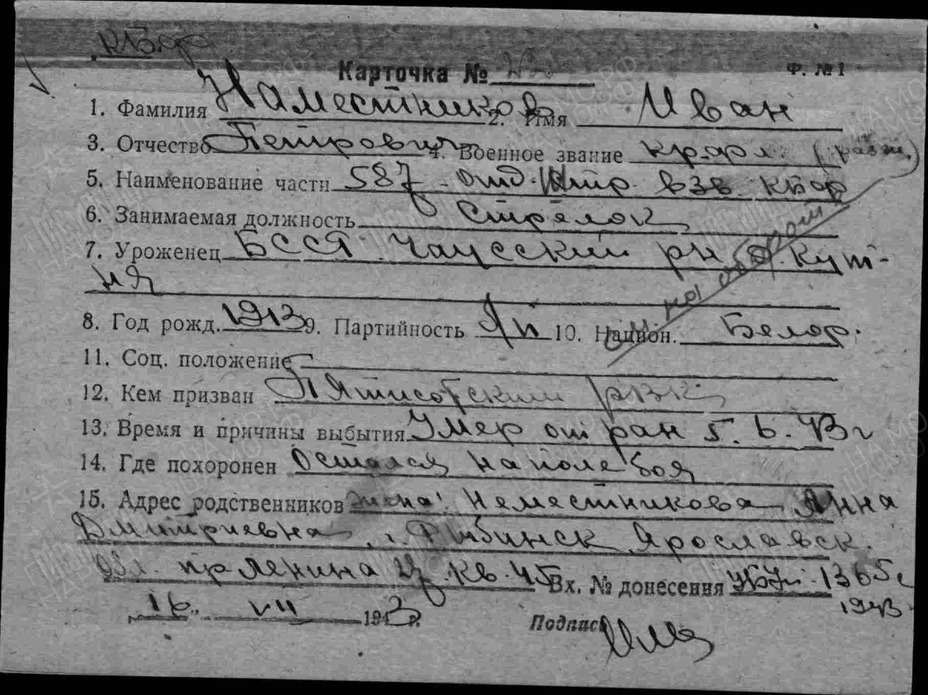 КБФ
Карточка № Ф. №1
1. Фамилия Наместников 2. Имя Иван
3. Отчество Петрович 4. Военное звание кр-арм. (разж.)
5. Наименование части 587 отд. штр. взв КБФ
6. Занимаемая должность Стрелок
7. Уроженец БССР Чаусский рн д. Кут-
ня
8. Год рожд. 1913 9. Партийность 10. Национ. Белор.
11. Соц. положение
12. Кем призван РВК
13. Время и причины выбытия Умер от ран 5.6.43г
14. Где похоронен Остался на поле боя
15. Адрес родственников жена: Неместникова Анна
Дмитриевна, г. Рыбинск Ярославск.
обл. пр Ленина кв. 45 Вх. № донесения 1365с
16 VII 1943 г. 1943
Подпись